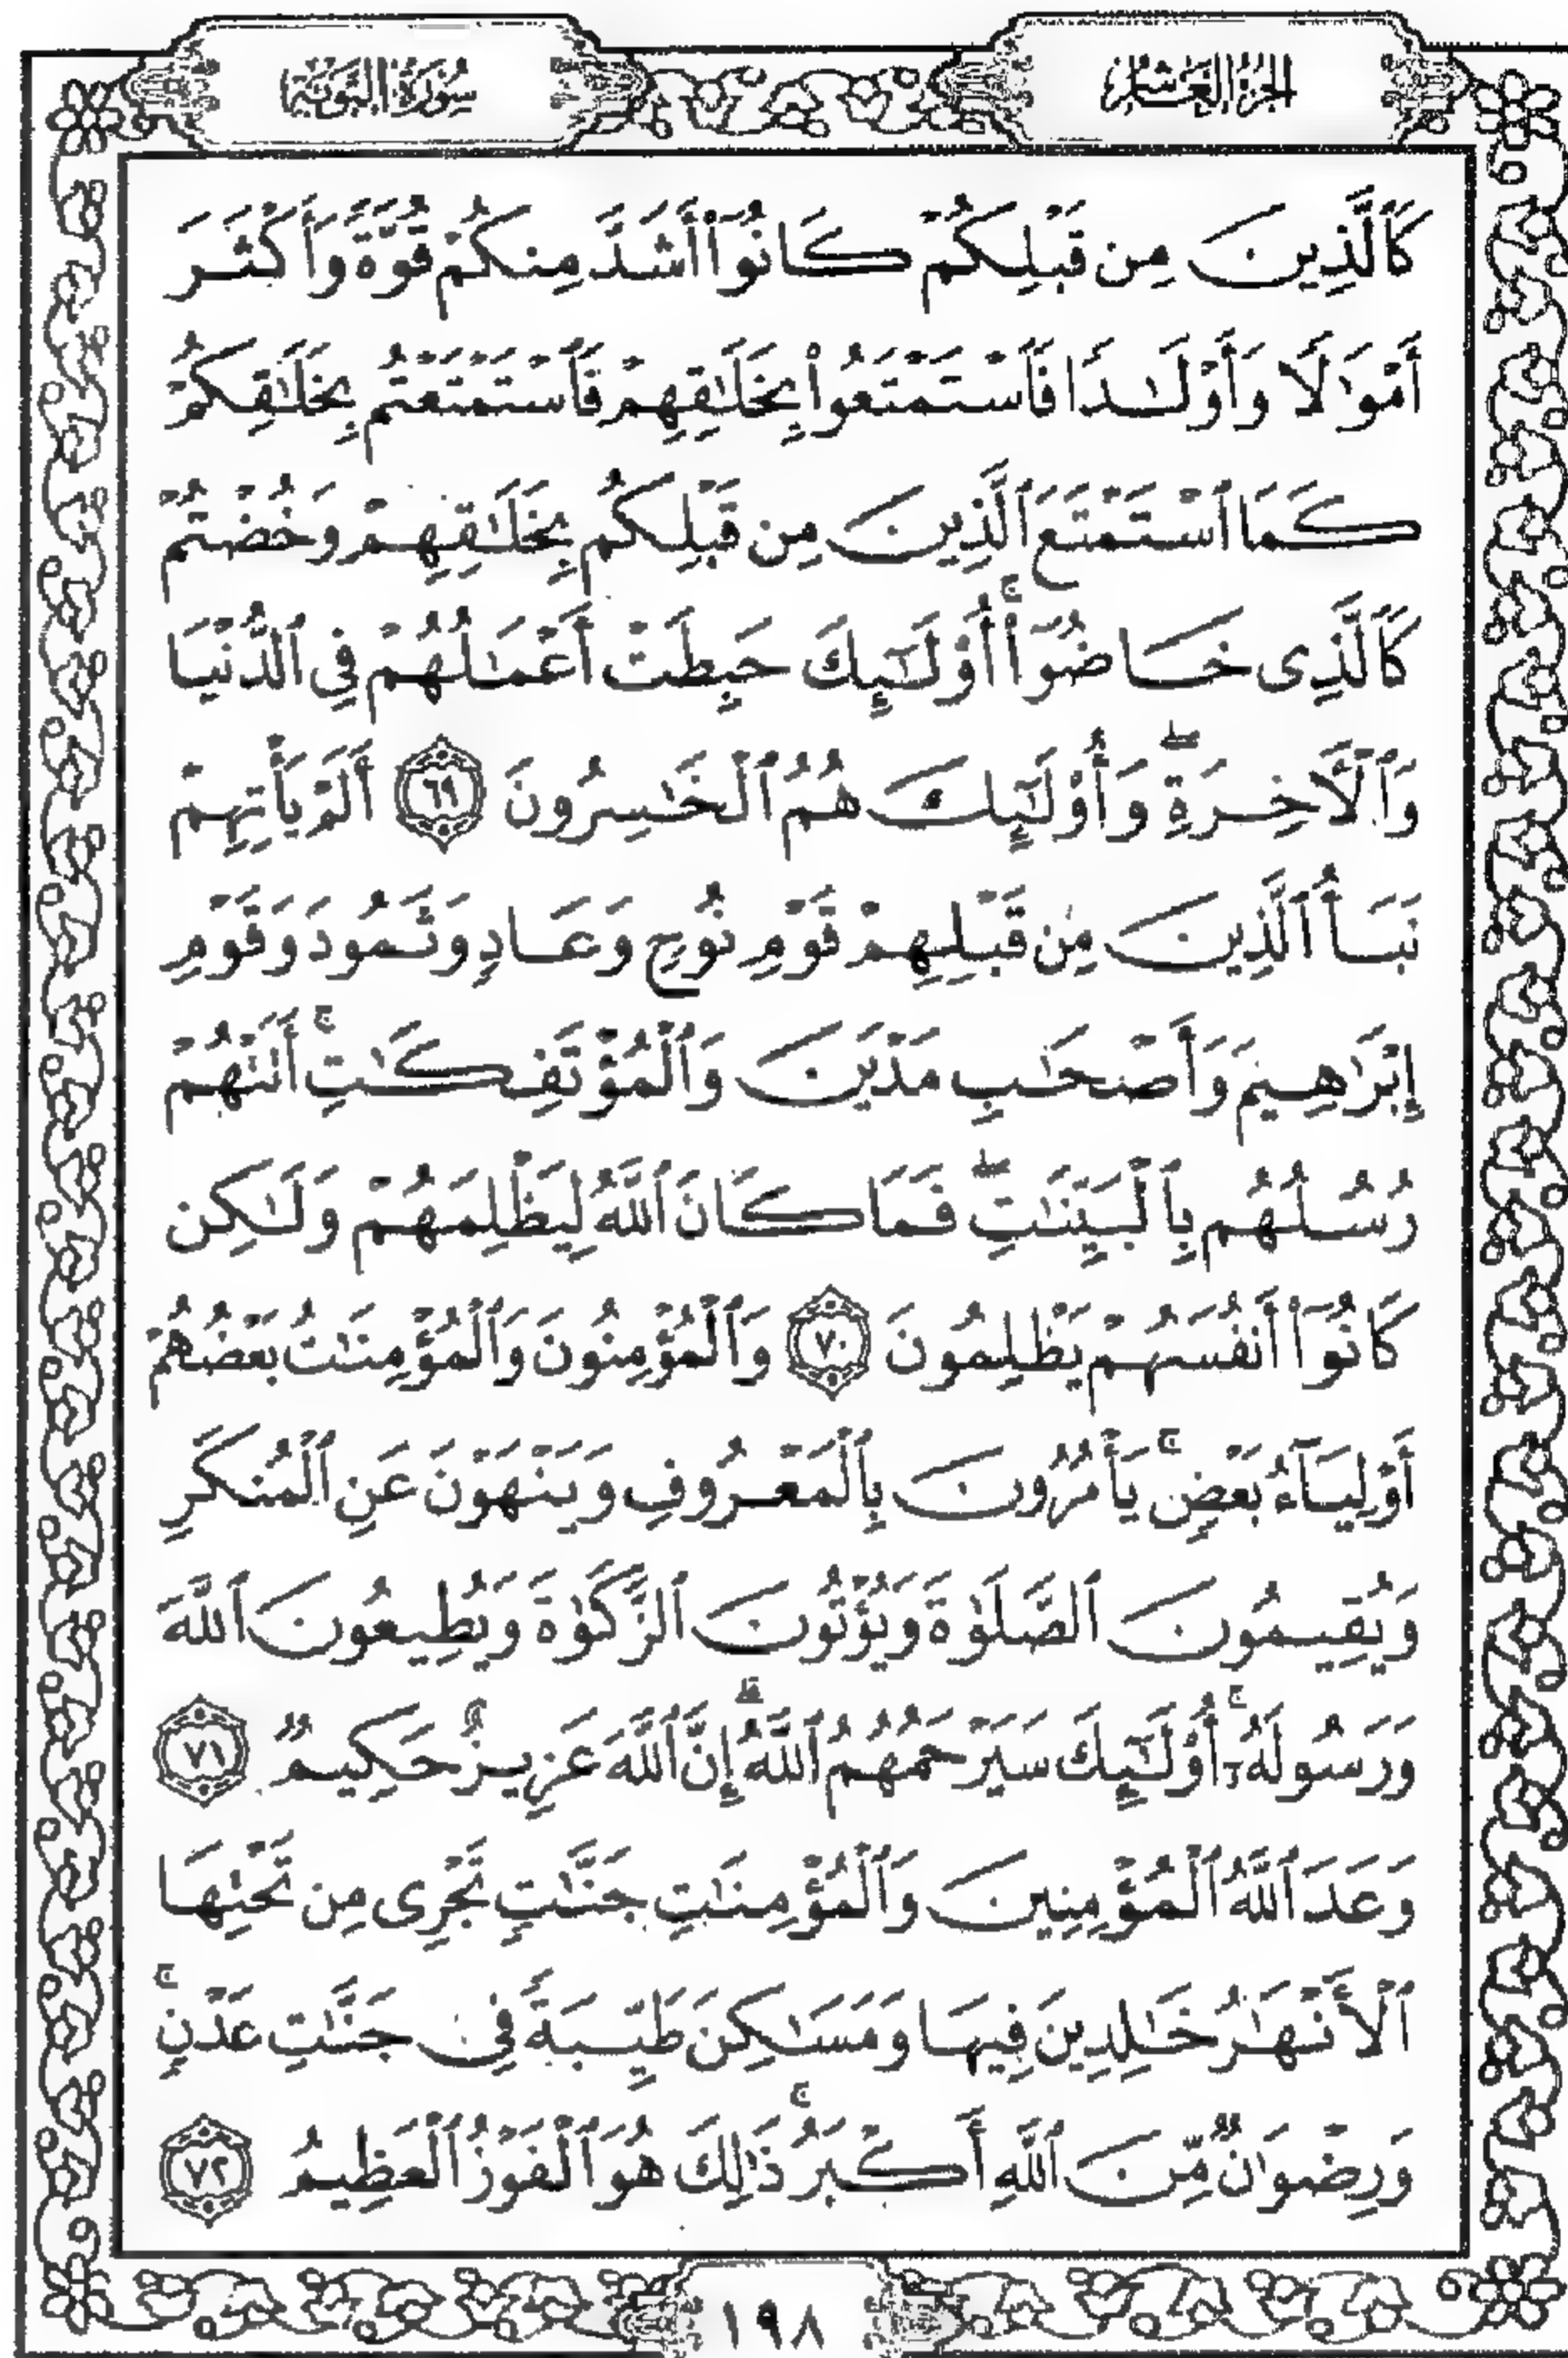 الجزء العاشر
سورة التوبة
كَٱلَّذِينَ مِن قَبْلِكُمْ كَانُوٓا۟ أَشَدَّ مِنكُمْ قُوَّةً وَأَكْثَرَ
أَمْوَٰلًا وَأَوْلَـٰدًا فَٱسْتَمْتَعُوا۟ بِخَلَـٰقِهِمْ فَٱسْتَمْتَعْتُم بِخَلَـٰقِكُمْ
كَمَا ٱسْتَمْتَعَ ٱلَّذِينَ مِن قَبْلِكُم بِخَلَـٰقِهِمْ وَخُضْتُمْ
كَٱلَّذِى خَاضُوٓا۟ ۚ أُو۟لَـٰٓئِكَ حَبِطَتْ أَعْمَـٰلُهُمْ فِى ٱلدُّنْيَا
وَٱلْـَٔاخِرَةِ ۖ وَأُو۟لَـٰٓئِكَ هُمُ ٱلْخَـٰسِرُونَ ٦٩ أَلَمْ يَأْتِهِمْ
نَبَأُ ٱلَّذِينَ مِن قَبْلِهِمْ قَوْمِ نُوحٍ وَعَادٍ وَثَمُودَ وَقَوْمِ
إِبْرَٰهِيمَ وَأَصْحَـٰبِ مَدْيَنَ وَٱلْمُؤْتَفِكَـٰتِ ۚ أَتَتْهُمْ
رُسُلُهُم بِٱلْبَيِّنَـٰتِ ۖ فَمَا كَانَ ٱللَّهُ لِيَظْلِمَهُمْ وَلَـٰكِن
كَانُوٓا۟ أَنفُسَهُمْ يَظْلِمُونَ ٧٠ وَٱلْمُؤْمِنُونَ وَٱلْمُؤْمِنَـٰتُ بَعْضُهُمْ
أَوْلِيَآءُ بَعْضٍ ۚ يَأْمُرُونَ بِٱلْمَعْرُوفِ وَيَنْهَوْنَ عَنِ ٱلْمُنكَرِ
وَيُقِيمُونَ ٱلصَّلَوٰةَ وَيُؤْتُونَ ٱلزَّكَوٰةَ وَيُطِيعُونَ ٱللَّهَ
وَرَسُولَهُۥٓ ۚ أُو۟لَـٰٓئِكَ سَيَرْحَمُهُمُ ٱللَّهُ ۗ إِنَّ ٱللَّهَ عَزِيزٌ حَكِيمٌ ٧١
وَعَدَ ٱللَّهُ ٱلْمُؤْمِنِينَ وَٱلْمُؤْمِنَـٰتِ جَنَّـٰتٍ تَجْرِى مِن تَحْتِهَا
ٱلْأَنْهَـٰرُ خَـٰلِدِينَ فِيهَا وَمَسَـٰكِنَ طَيِّبَةً فِى جَنَّـٰتِ عَدْنٍ ۚ
وَرِضْوَٰنٌ مِّنَ ٱللَّهِ أَكْبَرُ ۚ ذَٰلِكَ هُوَ ٱلْفَوْزُ ٱلْعَظِيمُ ٧٢
١٩٨